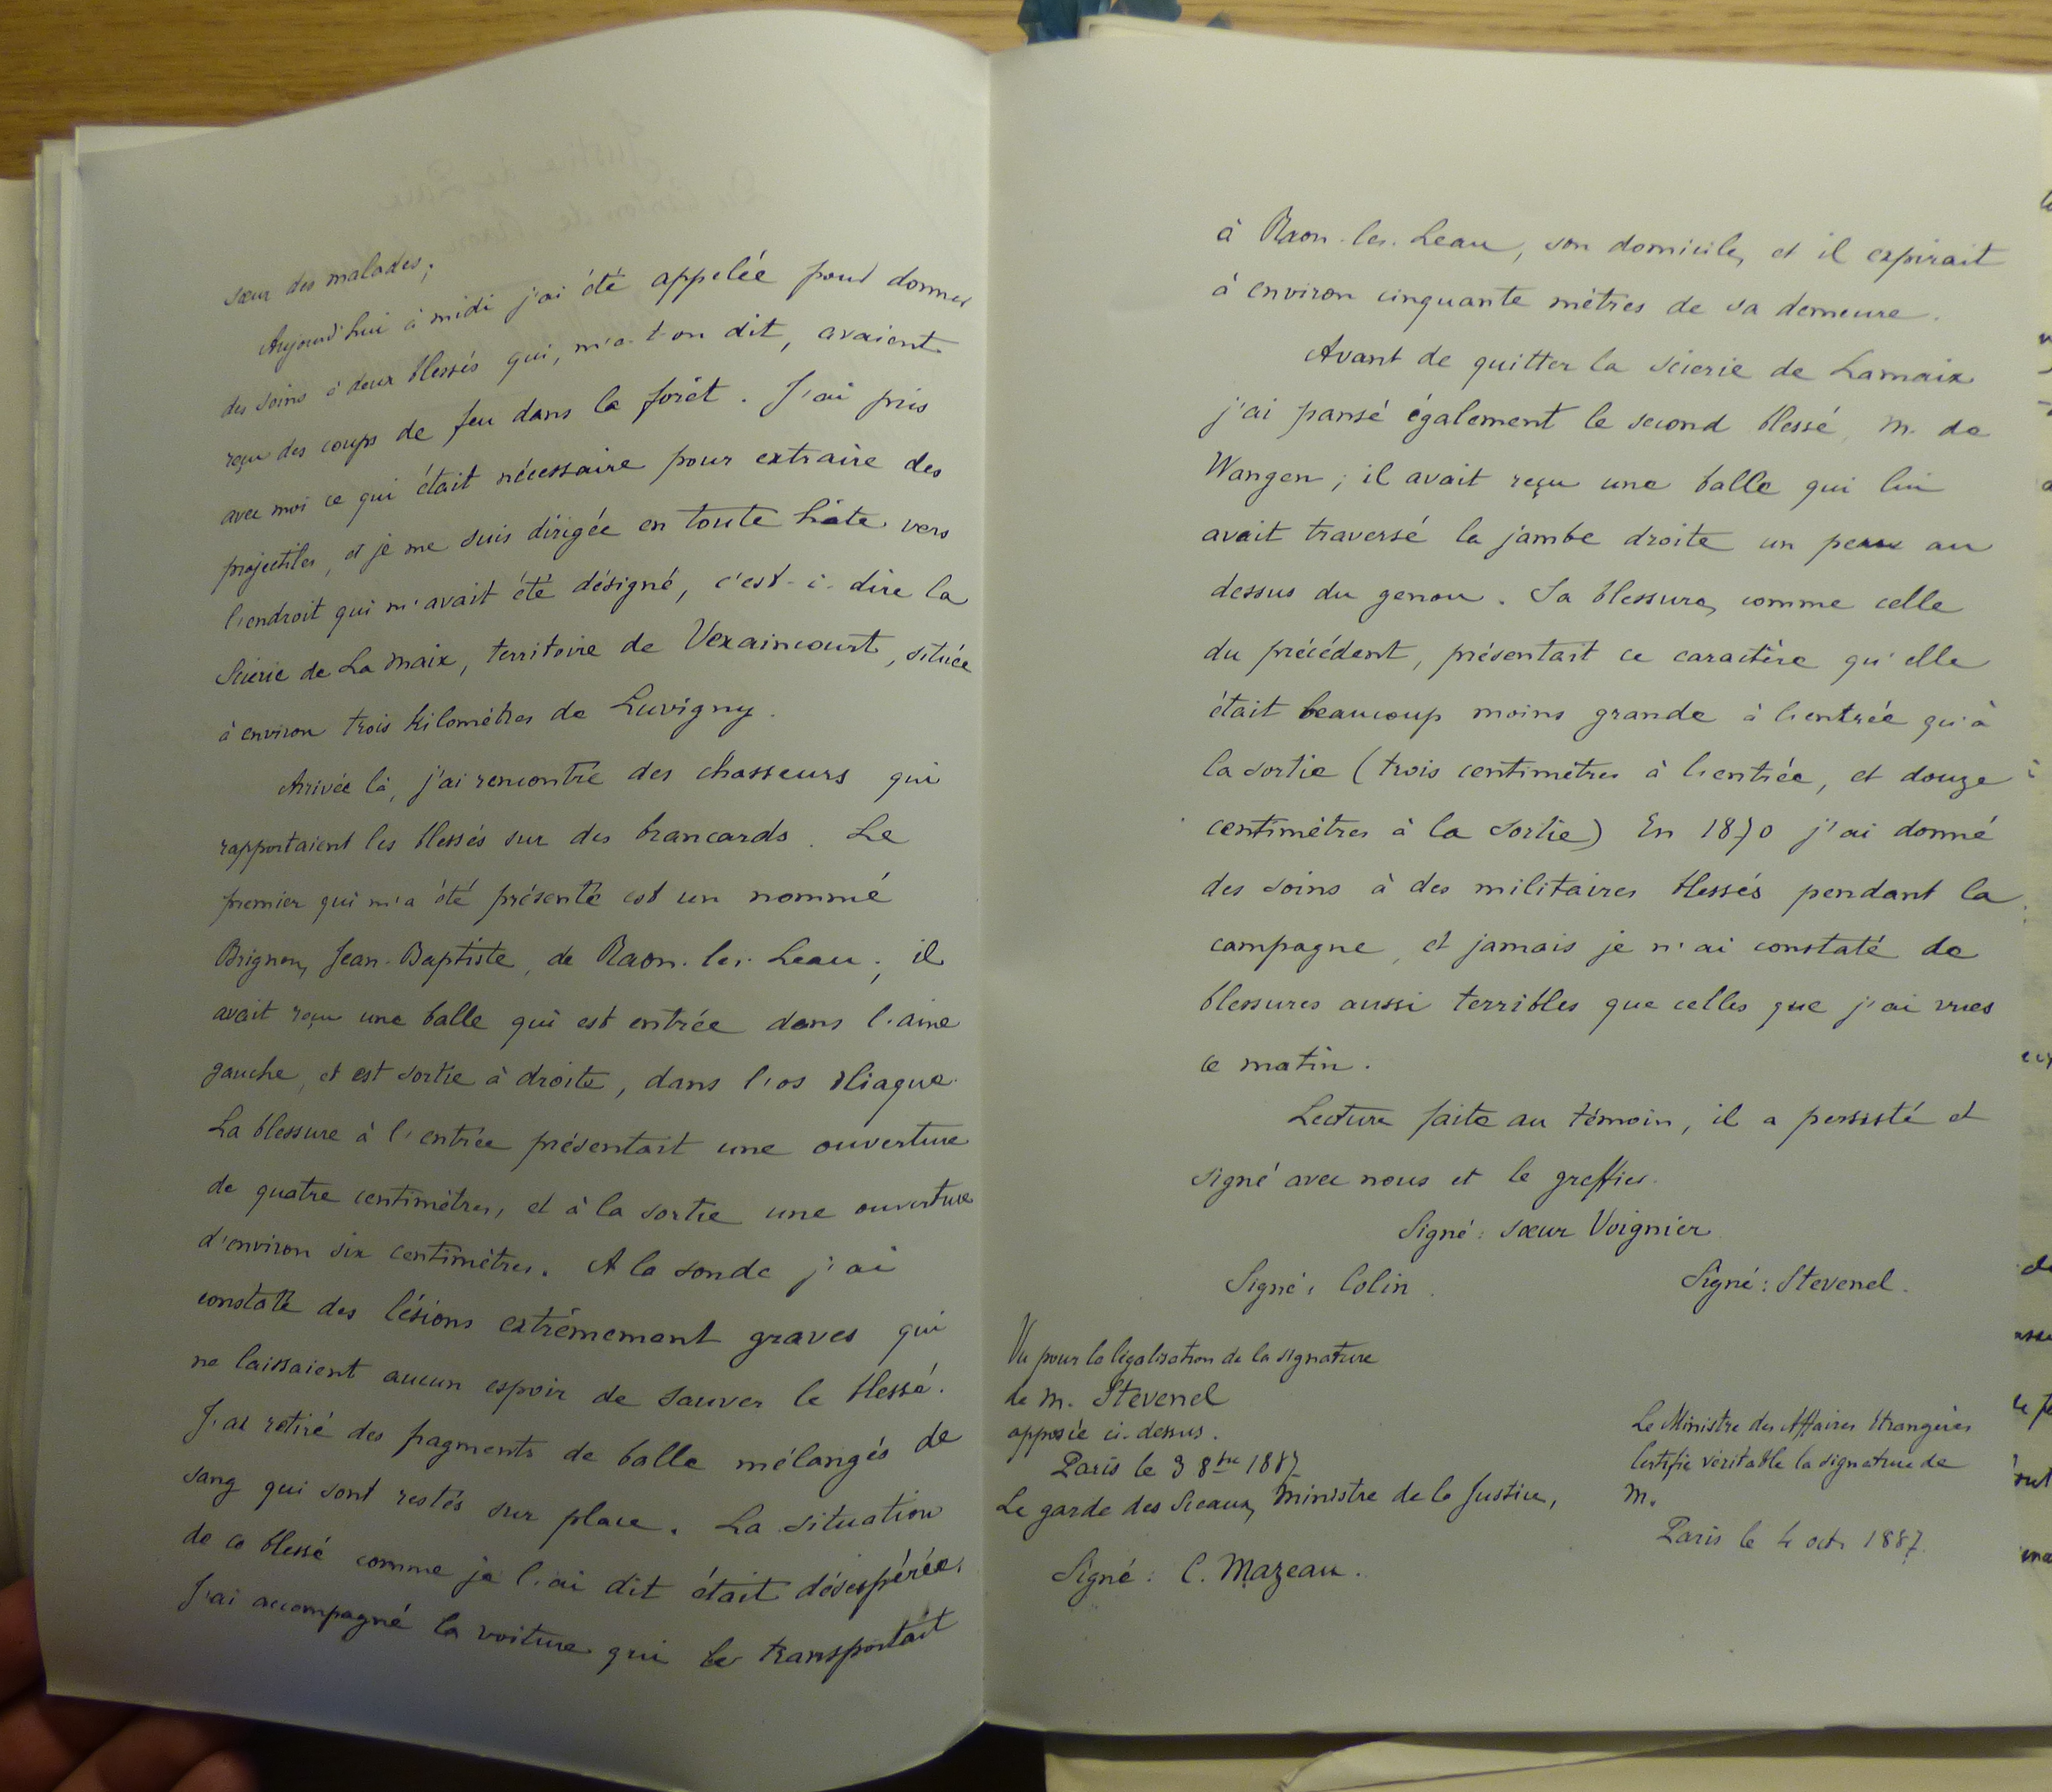 sœur des malades;
Aujourd'hui à midi j'ai été appelée pour donner
des soins à deux blessés qui, m'a-t-on dit, avaient
reçu des coups de feu dans la forêt. J'ai pris
avec moi ce qui était nécessaire pour extraire des
projectiles, et je me suis dirigée en toute hâte vers
l'endroit qui m'avait été désigné, c'est-à-dire la
Scierie de La Maix, territoire de Vexaincourt, située
à environ trois kilomètres de Luvigny.
Arrivée là, j'ai rencontré des chasseurs qui
rapportaient les blessés sur des brancards. Le
premier qui m'a été présenté est un nommé
Brignon, Jean-Baptiste, de Raon-les-Leau; il
avait reçu une balle qui est entrée dans l'aine
gauche, et est sortie à droite, dans l'os iliaque.
La blessure à l'entrée présentait une ouverture
de quatre centimètres, et à la sortie une ouverture
d'environ six centimètres. A la sonde j'ai
constaté des lésions extrêmement graves qui
ne laissaient aucun espoir de sauver le blessé.
J'ai retiré des fragments de balle mélangés de
sang qui sont restés sur place. La situation
de ce blessé comme je l'ai dit était désespérée.
J'ai accompagné la voiture qui le transportait
à Raon-les-Leau, son domicile, et il expirait
à environ cinquante mètres de sa demeure.
Avant de quitter la scierie de Lamaix
j'ai pansé également le second blessé, M. de
Wangen; il avait reçu une balle qui lui
avait traversé la jambe droite un peu au
dessus du genou. Sa blessure, comme celle
du précédent, présentait ce caractère qu'elle
était beaucoup moins grande à l'entrée qu'à
la sortie (trois centimètres à l'entrée, et douze
centimètres à la sortie) En 1870 j'ai donné
des soins à des militaires blessés pendant la
campagne, et jamais je n'ai constaté de
blessures aussi terribles que celles que j'ai vues
ce matin.
Lecture faite au témoin, il a persisté et
signé avec nous et le greffier.
Signé: sœur Voignier
Signé: Colin.
Signé: Stevenel.
Vu pour la législation de la signature
de M. Stevenel
apposée ci-dessus.
Paris le 3 8bre 1887
Le garde des Sceaux, Ministre de la Justice,
Signé: C. Mazeau.
Le Ministre des Affaires Etrangères
Certifie véritable la signature de
M.
Paris le 4 oct. 1887